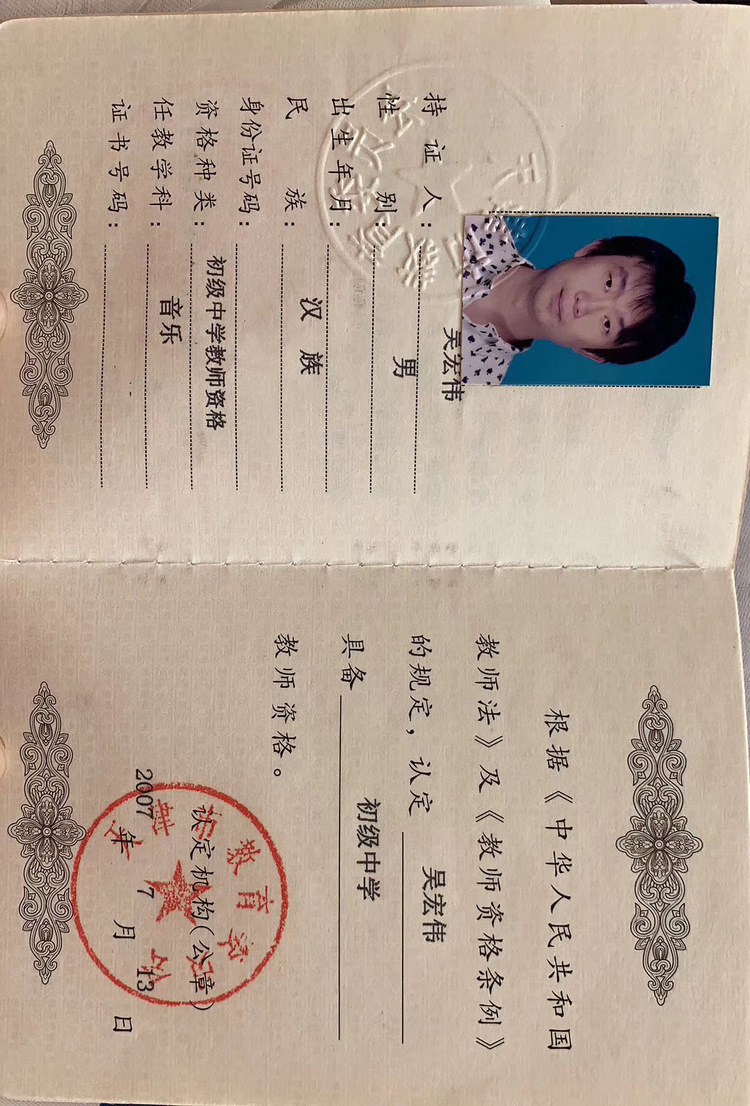 持证人：吴宏伟
性别：男
出生年月：
民族：汉族
身份证号码：
资格种类：初级中学教师资格
任教学科：音乐
证书号码：
根据《中华人民共和国
教师法》及《教师资格条例》
的规定，认定 吴宏伟
具备 初级中学
教师资格。
认定机构(公章)
2007 年 7 月 13 日
教育